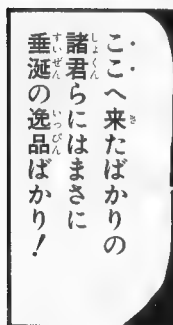 ここへ来たばかりの
諸君らにはまさに
垂涎の逸品ばかり！